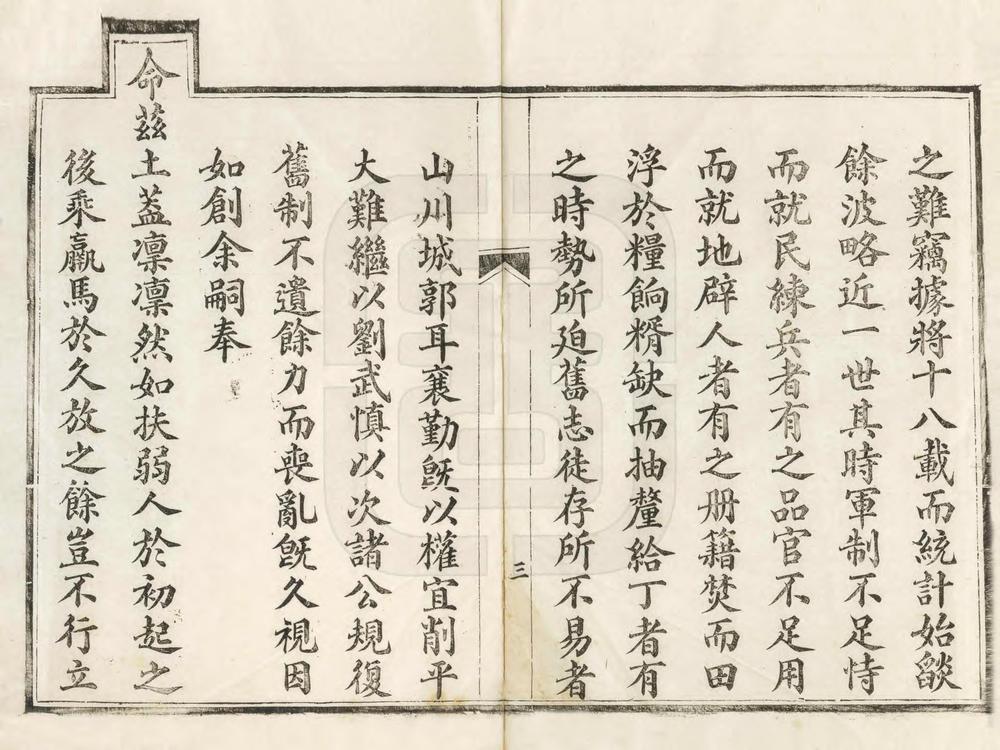 之難竊據將十八載而統計始燄
餘波略近一世其時軍制不足恃
而就民練兵者有之品官不足用
而就地辟人者有之册籍焚而田
浮於糧餉糈缺而抽釐給丁者有
之時勢所廹舊志徒存所不易者
三
山川城郭耳襄勤旣以權宜削平
大難繼以劉武慎以次諸公規復
舊制不遺餘力而喪亂旣久視因
如創余嗣奉
命茲土蓋凜凜然如扶弱人於初起之
後乘羸馬於久放之餘豈不行立